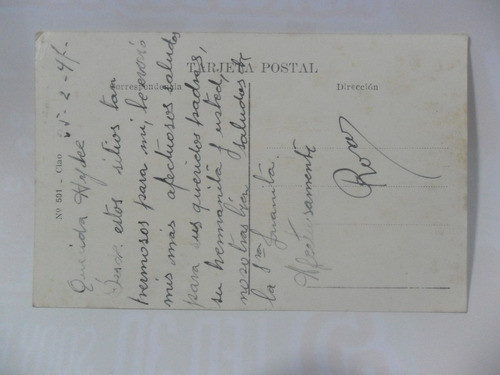 TARJETA POSTAL
Correspondencia
Dirección
Nº 591 - Ciao
5-2-47-
Querida Haydeé
estos sitios tan
hermosos para mi,
mis más afectuosos saludos
para sus queridos padres,
su hermanita y usted,
nosotras bien saludos de
la Sra Juanita.
Afectuosamente
Rosa